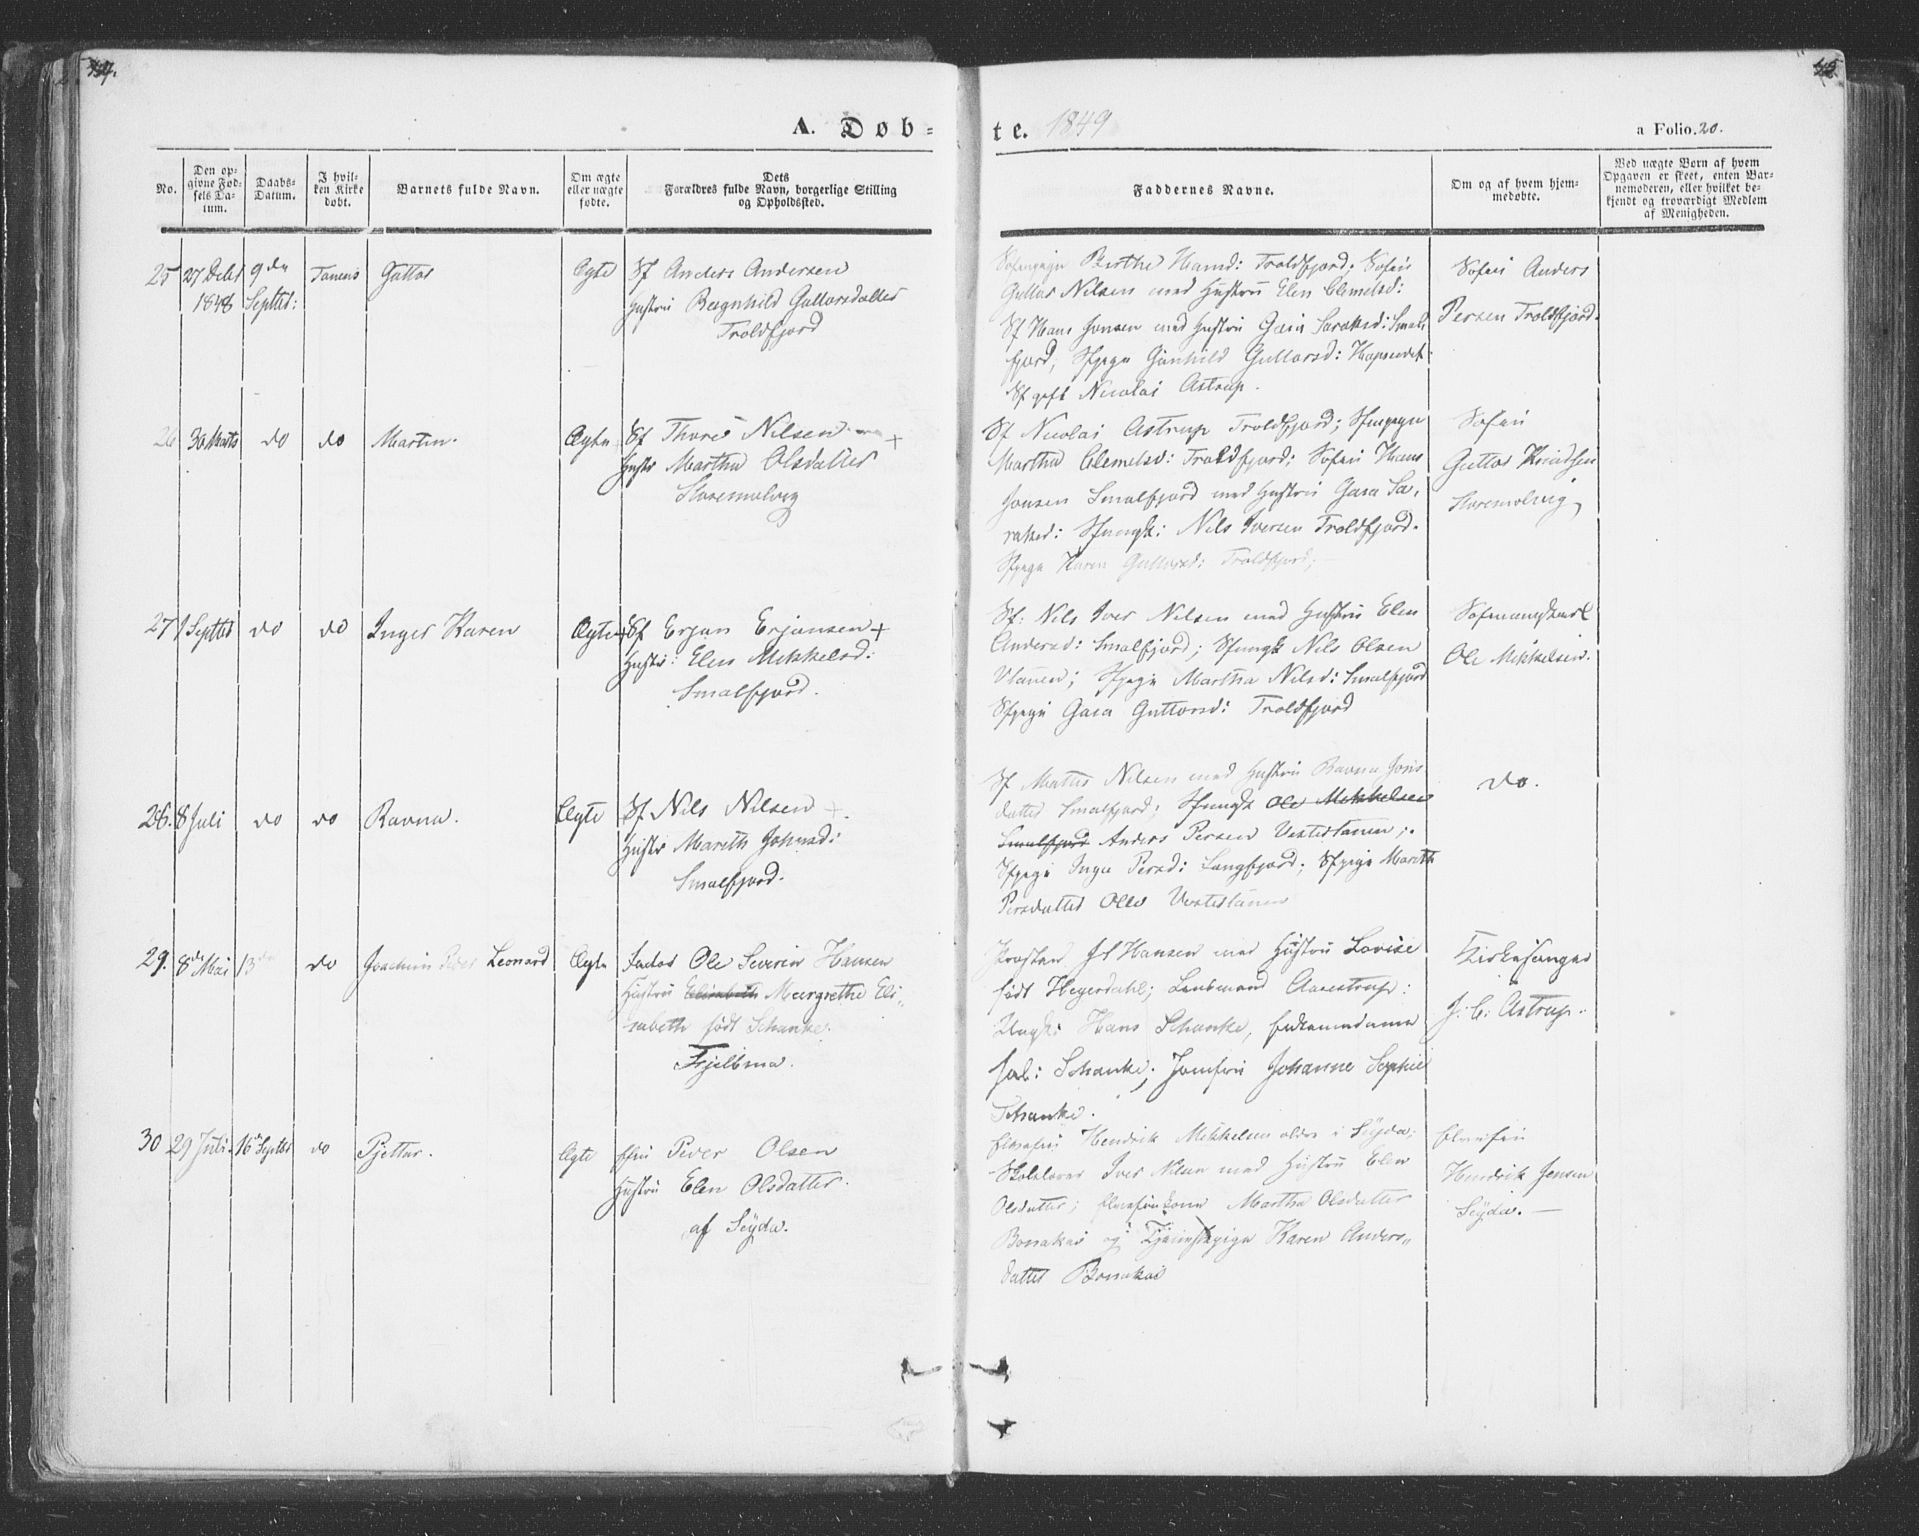 A. Døb-
te. 1849
a Folio. 20.
No.
Den op-
givne Fød-
sels Da-
tum.
Daabs-
Datum.
I hvil-
ken Kirke
døbt.
Barnets fulde Navn.
Om ægte
eller uægte
fødte.
Dets
Forældres fulde Navn, borgerlige Stilling
og Opholdssted.
Faddernes Navne.
Om og af hvem hjem-
medøbte.
Ved uægte Børn af hvem
Opgaven er skeet, enten Bar-
nemoderen, eller hvilket be-
kjendt og troværdigt Medlem
af Menigheden.
25 27 Debr 9de Tanens Guttor Ægte Sf Anders Andersen
1848 Septbr: Hustru Ragnhild Guttorsdatter
Troldfjord
Birthe Hansd: Troldfjord; Søfin
Guttor Nilsen med Hustru Elen Clemetsd:
Sf Hans Jonsen med Hustru Gaia Saraksd: Smal-
fjord; Sfpige Gunhild Guttorsd: Hopseidet
Sf gift Nicolai Astrup.
Søfin Anders
Persen Troldfjord.
26 30 Marts do do Martin. Ægte Sf Thore Nilsen +
Hustr Martha Olsdatter
Storemolvig
Sf Nicolai Astrup Troldfjord; Sfinpige
Martha Clemetsd: Troldfjord; Søfin Hans
Jonsen Smalfjord med Hustru Gaia Sa-
raksd: Sfungk: Nils Iversen Troldfjord.
Sfpige Karen Guttorsd: Troldfjord;
Søfin
Guttor Knudsen
Storemolvig
27 1 Septbr do do Inger Karen Ægte Sf Erjan Erjansen +
Hustr: Elen Mikkelsd:
Smalfjord.
Sf: Nils Iver Nilsen med Hustru Elen
Andersd: Smalfjord; Sfungk Nils Olsen
Vtanen; Sfpige Martha Nilsd: Smalfjord
Sfpige Gaia Guttorsd: Troldfjord
Ole Mikkelsen.
28. 8 Juli do do Ravna. Ægte Sf Nils Nilsen +
Hustr Mareth Johnsd:
Smalfjord.
Sf Mattis Nilsen med Hustru Ravna Jons
datter Smalfjord; Sfungk Ole Mikkelsen
Smalfjord Anders Persen Vestertanen;
Sfpige Inga Persd: Langfjord; Sfpige Mareth
Persdatter Olle Vestertanen
do.
29. 8de Mai 13de do Joachim Peder Leonard Ægte Factor Ole Severin Hansen
Hustru Elisabeth Margrethe Eli-
sabeth født Schanke.
Fjelbma.
Prosten Hansen med Hustru Lovise
født Heyerdahl; Lensmand Aarestrup:
Ungk: Hans Schanke,
Schanke; Jomfru Johanne Sophie
Schanke.
Kirkesanger
J. C. Astrup.
30 29 Juli. 16 Septbr do Pjettar. Ægte Peder Olsen
Hustru Elen Olsdatter.
af Seyda.
Elvefin Hendrik Mikkelsen ældre i Seyda;
Skolelærer Iver Nilsen med Hustru Elen
Olsdatter; Elvefinkone Martha Olsdatter
Bonakas og Tjenistpige Karen Anders-
datter Bonakas
Elvefin
Hendrik Jensen
Seyda.